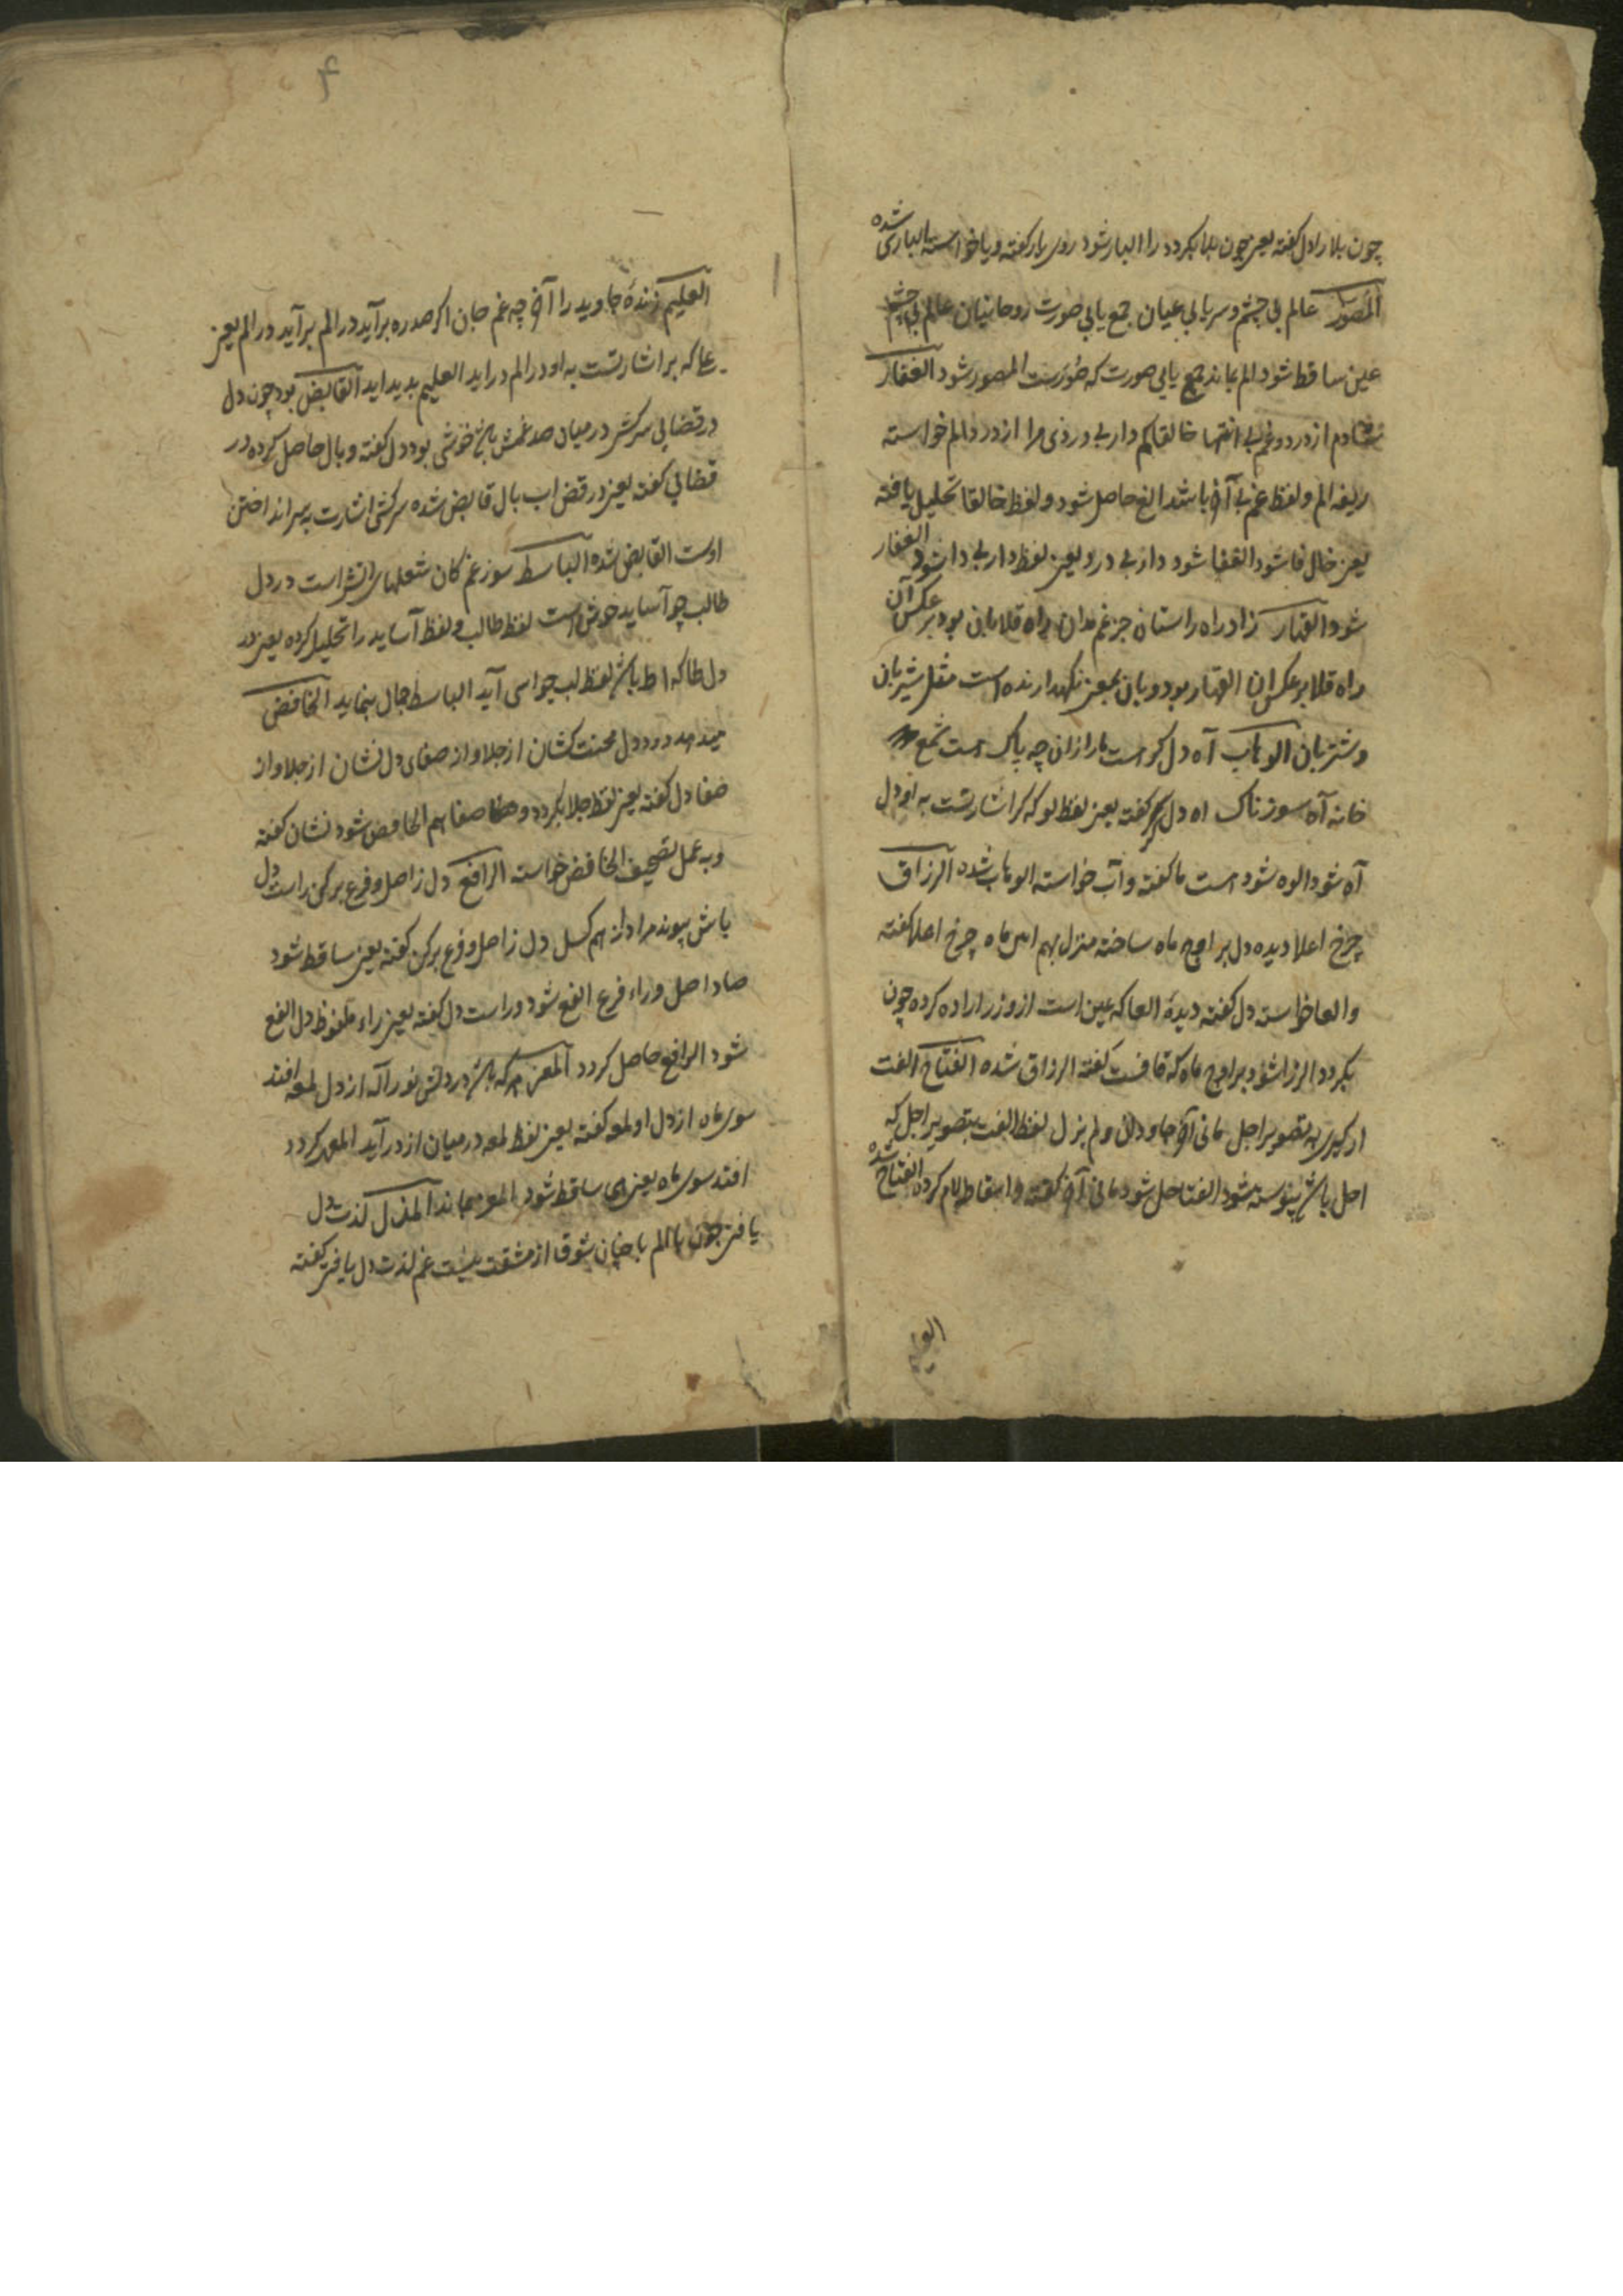 چون بلا را دل گفته یعنی چون بلا بگردد را البار شود روی یار گفته و یا خواسته الباری شده
المصور عالم بی چشم و سر یابی عیان جمع یابی صورت روحانیان عالم بی چشم
عین ساقط شود الم بماند جمع یابی صورت که صورست المصور شود الغفار
شادم از درد و غم بی انتها خالقا کم دار بی دردی مرا از درد الم خواسته
ریفه الم و لفظ غم بی آخر باشد الغ حاصل شود و لفظ خالقا تحلیل یافته
یعنی خال فا شود الغفا شود دار بی درد یعنی لفظ دار بی دا شود الغفار
شود القهار زاد راه راستان جز غم مدان راه قلابان بود بر عکس آن
راه قلا بر عکس ان القهار بود و بان بمعنی نگهدارنده است مثل شیربان
و شتربان الوهاب آه دل گر است ما را زان چه باک است شمع
خانه آه سوزناک اه دل گر گفته یعنی لفظ لو که گر اشارتست به او دل
آه شود الوه شود است ما گفته و آب خواسته الوهاب شده الرزاق
چرخ اعلا دیده دل بر اوج ماه ساخته منزل بهم این ماه چرخ اعلا گفته
و العا خواسته دل گفته دیده العا که عین است ازو زر اراده کرده چون
بگردد الرزا شود بر اوج ماه که قافست گفته الرزاق شده الفتاح الفت
ار گیری به تصویر اجل مانی آخر جاودان و لم یزل لفظ الفت بتصویر اجل که
احل باشد پیوسته شود الفتاحل شود مانی آخر گفته و اسقاط لام کرده الفتاح شده
العلیم
۴
العلیم زندهٔ جاوید را آخر چه غم جان اگر صد ره برآید در الم برآید در الم یعنی
علی که بر اشارتست به او در الم در اید العلیم پدید اید القابض بود چون دل
در قضایی سرکش در میان صد غمش باشد خوشی بود دل گفته و بال حاصل کرده در
قضایی گفته یعنی در قض اب بال قابض شده سرکشی اشارت به سر انداختن
اوست القابض شده الباسط سوز غم کان شعلهای اتش است در دل
طالب چو آساید خوش است لفظ طالب و لفظ آساید را تحلیل کرده یعنی در
دل طا که اط باشد لفظ لب چو اسی آید الباسط جمال بنماید الخافض
میدهد درد دل محنت کشان از جلا و از صفای دل نشان از جلا و از
صفا دل گفته یعنی لفظ جلا بگردد و صفا هم الحافص شود نشان گفته
و به عمل تصحیف الخافض خواسته الرافع دل ز اصل و فرع برکن راست دل
باش پیوند مراد از هم گسل دل ز اصل و فرع برکن گفته یعنی ساقط شود
صاد اصل و راء فرع الفع شود و راست دل گفته یعنی راء ملفوظ دل الفع
شود الرافع حاصل گردد المعز هر که باشد در دلش نور آله از دل لمعه افتد
سوی ماه از دل او لمعه گفته یعنی لفظ لمعه در میان از در آید المعهز گردد
افتد سوی ماه یعنی های ساقط شود المعز بماند المذل لذت دل
یافتی چون با الم با چنان شوق از مشقت نیست غم لذت دل یافتی گفته